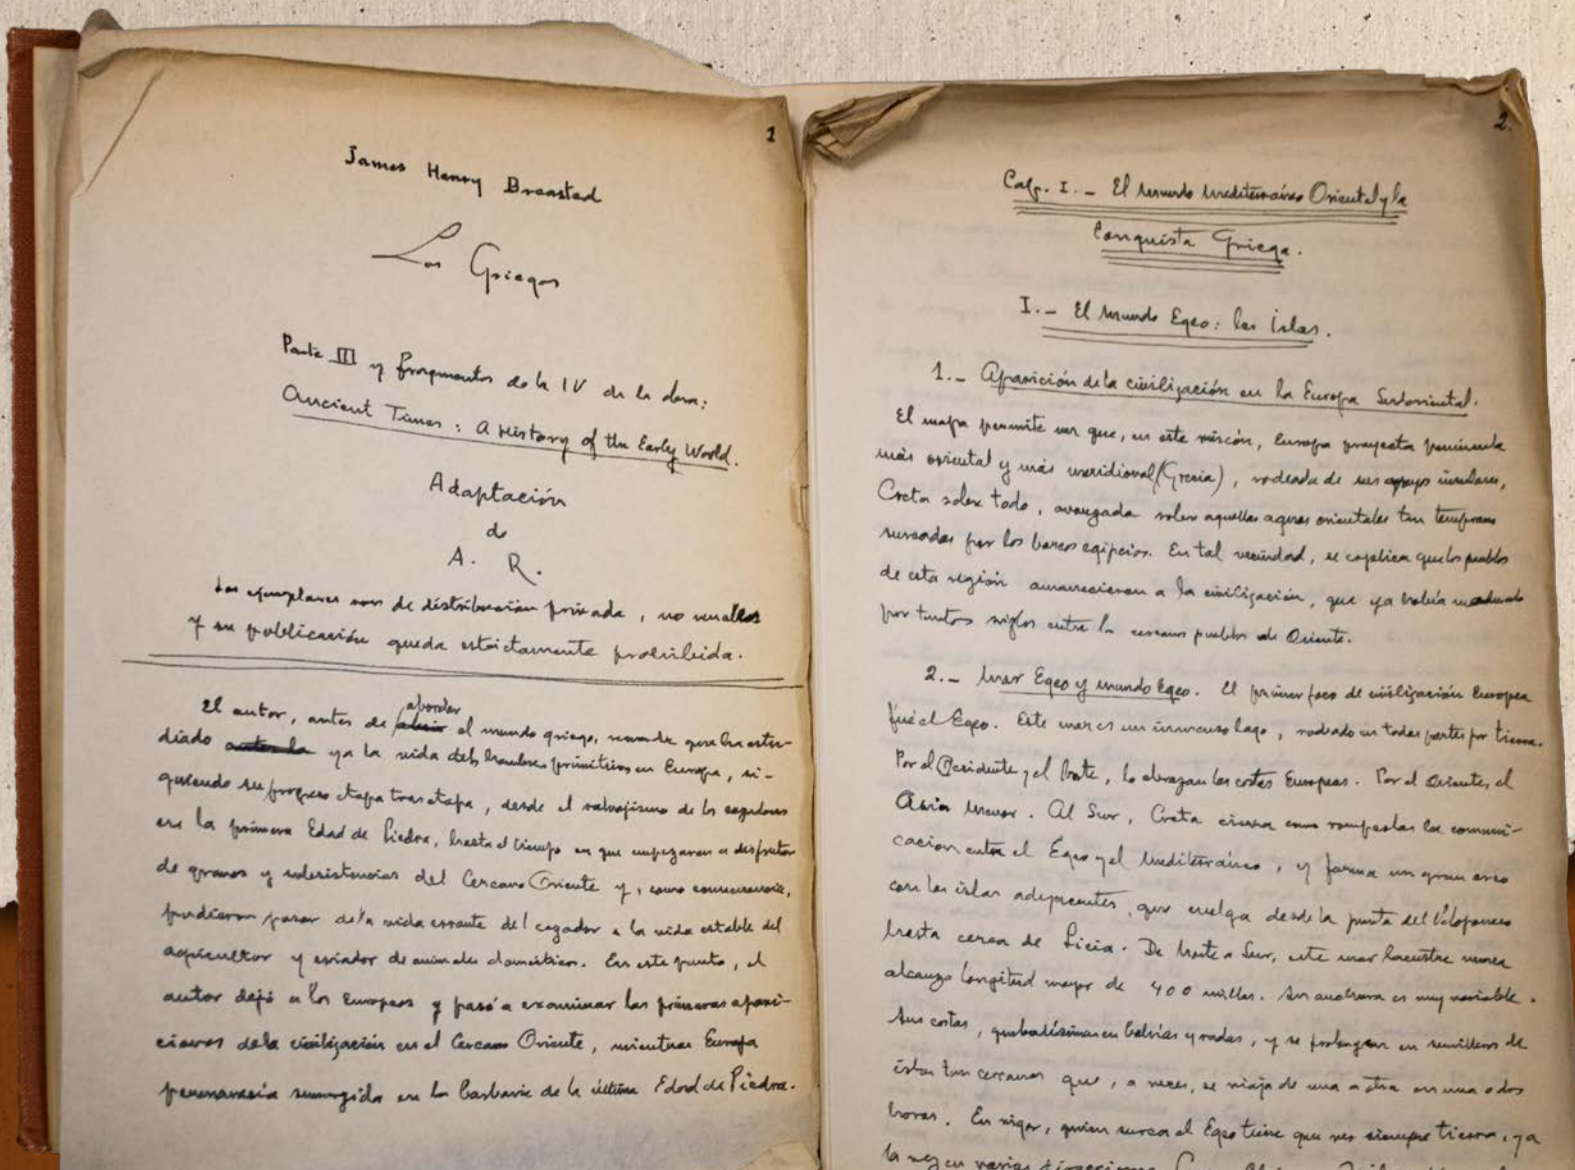 1
James Henry Breasted
Los Griegos
Parte III y fragmentos de la IV de la obra:
Ancient Times: A History of the Early World.
Adaptación
de
A. R.
Los ejemplares son de distribución privada, no venables
y su publicación queda estrictamente prohibida.
aborder
El autor, antes de el mundo griego, recuerda que ha estu-
diado ya la vida del hombre primitivo en Europa, si-
guiendo su progreso etapa tras etapa, desde el salvajismo de los cazadores
en la primera Edad de Piedra, hasta el tiempo en que empezaron a disfrutar
de granos y subsistencias del Cercano Oriente y, como consecuencia,
pudieron pasar de la vida errante del cazador a la vida estable del
agricultor y criador de animales domésticos. En este punto, el
autor dejó a los Europeos y pasó a examinar las primeras apari-
ciones de la civilización en el Cercano Oriente, mientras Europa
permanecía sumergida en la barbarie de la última Edad de Piedra.
2.
Cap. I.- El mundo mediterráneo Oriental y la
Conquista Griega.
I.- El mundo Egeo: las Islas.
1.- Aparición de la civilización en la Europa Sudoriental.
El mapa permite ver que, en este rincón, Europa proyecta península
más oriental y más meridional (Grecia), rodeada de sus insulares,
Creta sobre todo, avanzada sobre aquellas aguas orientales tan temprano
surcadas por los barcos egipcios. En tal vecindad, se explica que los pueblos
de esta región amanecieron a la civilización, que ya había madurado
por tantos siglos entre los cercanos pueblos de Oriente.
2.- Mar Egeo y mundo Egeo. El primer foco de civilización Europea
fué el Egeo. Este mar es un inmenso lago, rodeado en todas partes por tierra.
Por el Occidente y el Norte, lo abrazan las costas Europeas. Por el Oriente, el
Asia Menor. Al Sur, Creta cierra como rompeolas la comuni-
cación entre el Egeo y el Mediterráneo, y forma un gran arco
con las islas adyacentes, que cuelga desde la punta del Peloponeso
hasta cerca de Licia. De Norte a Sur, este mar lacustre nunca
alcanza longitud mayor de 400 millas. Su anchura es muy variable.
Sus costas, quebradísimas en bahías y radas, y se prolongan en semilleros de
islas tan cercanas que, a veces, se viaja de una a otra en una o dos
horas. En rigor, quien surca el Egeo tiene que ver siempre tierra, ya
la vez en varias direcciones.